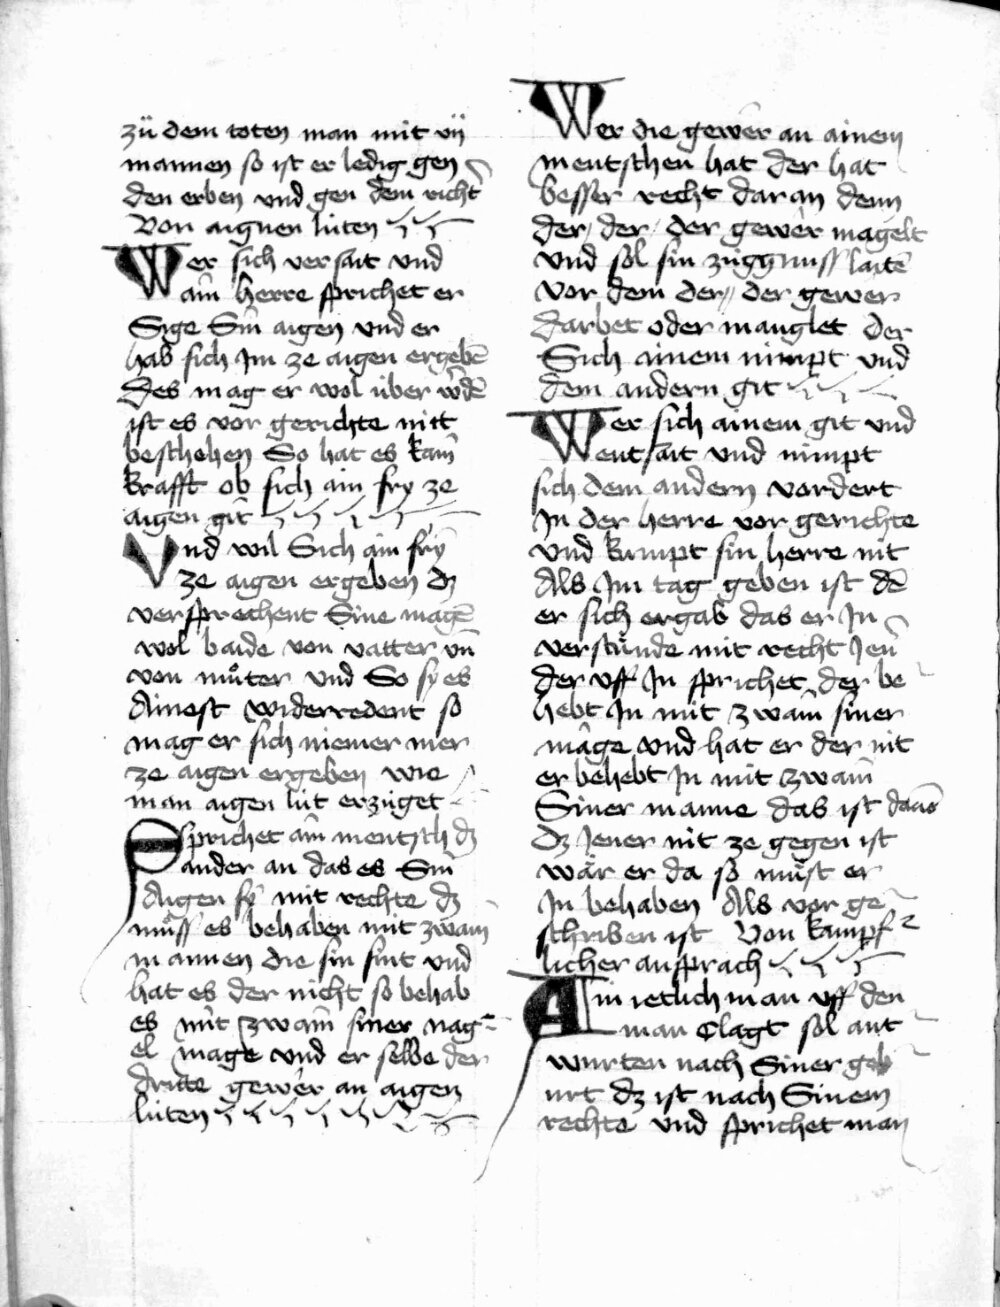 zü dem toten man mit vij
mannen so ist er ledig gen
den erben vnd gen dem richt̄
Von aignen lüten
Wer sich versait vnd
ain herre sprichet er
Sige Sin aigen vnd er
hab sich Im ze aigen ergebē
Des mag er wol über wͤdē
ist es vor gerichte nitt
beschehen So hat es kain
krafft ob sich ain fry ze
aigen git
Vnd wil Sich ain fry
ze aigen ergeben dz
versprechent Sine magē
wol baide von vatter vn̄
von můter vnd So sy es
Ainest widerredent so
mag er sich niemer mer
ze aigen ergeben wie
man aigen lüt erzüget
Sprichet ain mentsch dz
ander an das es Sin
Aigen sy mit rechte dz
müss es behaben mit zwain
mannen die sin sint vnd
hat es der nicht so behab
es mit zwain siner nag-
el mage vnd er selbe der
dritte gewer an aigen
lüten
Wer die gewer an ainem
mentschen hat der hat
besser recht daran denn
der / der / der gewer magelt
vnd sol sin züggnuss laitē
vor dem der // der gewer
darbet oder manglet der
Sich ainem nimpt vnd
dem andern git
Wer sich ainem git vnd
entsait vnd nimpt
sich dem andern vordert
In der herre vor gerichte
vnd kumpt sin herre nit
Als Im tag geben ist dē
er sich ergab das er In
verstünde mit recht Jen̄
der vff In sprichet der be-
hebt In mit zwain siner
mäge vnd hat er der nit
er behebt In mit zwain
Siner manne das ist
dz Jener nit ze gegen ist
wär er da so müst er
In behaben Als vor ge-
schriben ist Von kampf-
licher ansprach
Ain ietlich man vff den
man Clagt sol ant-
wurten nach Siner geb-
urt dz ist nach Sinem
rechte vnd sprichet man